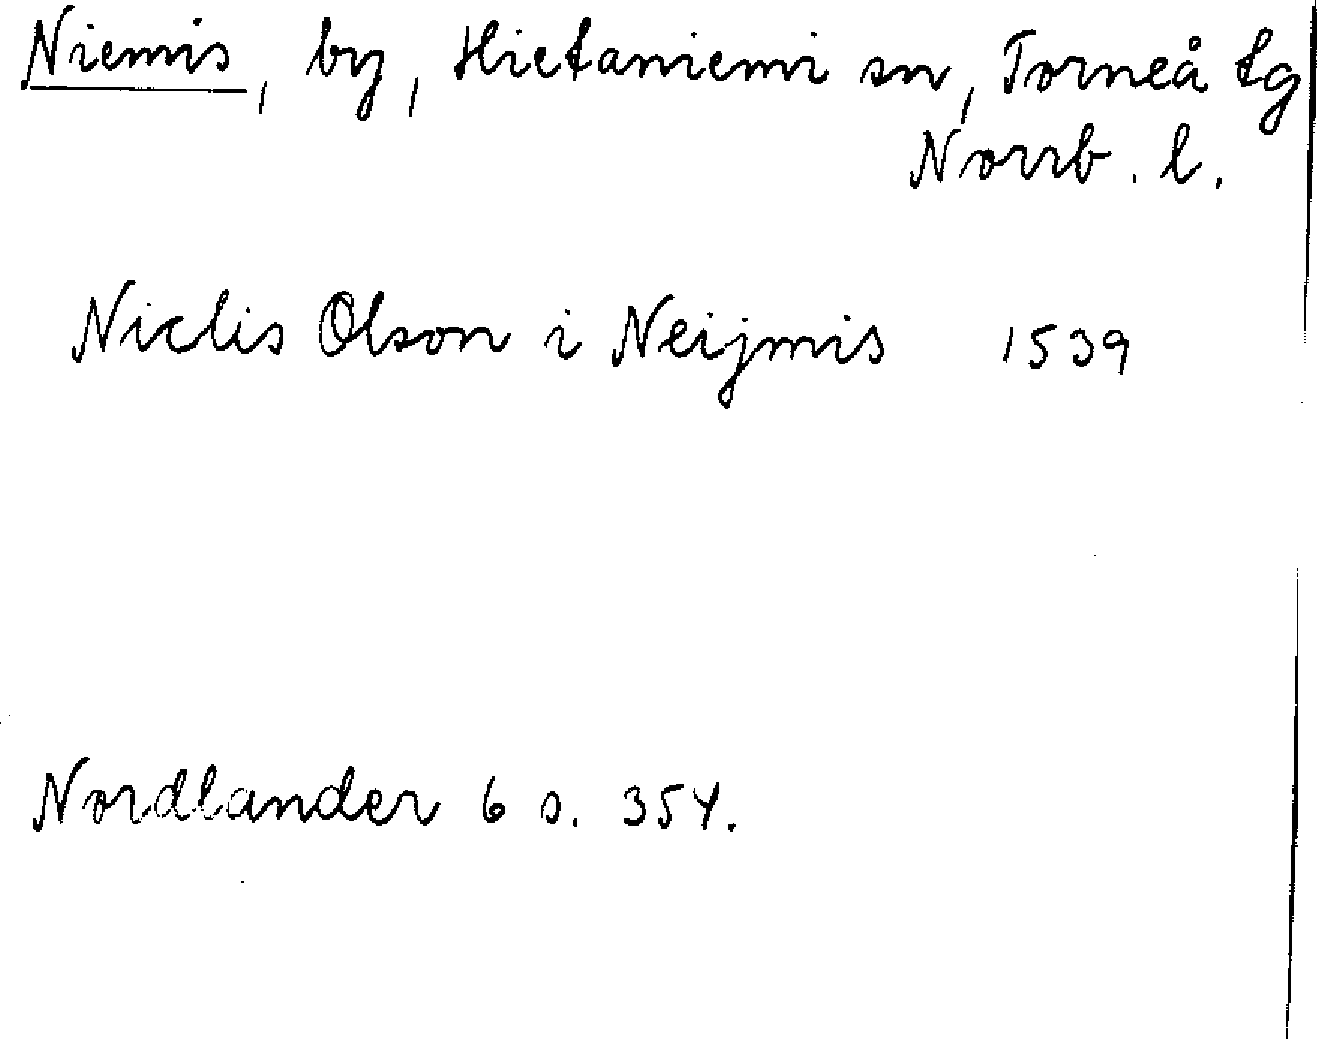 Niemis, by, Hietaniemi sn, Torneå tg
Norrb. l.
Niclis Olson i Neijmis 1539
Nordlander 6 s. 354.